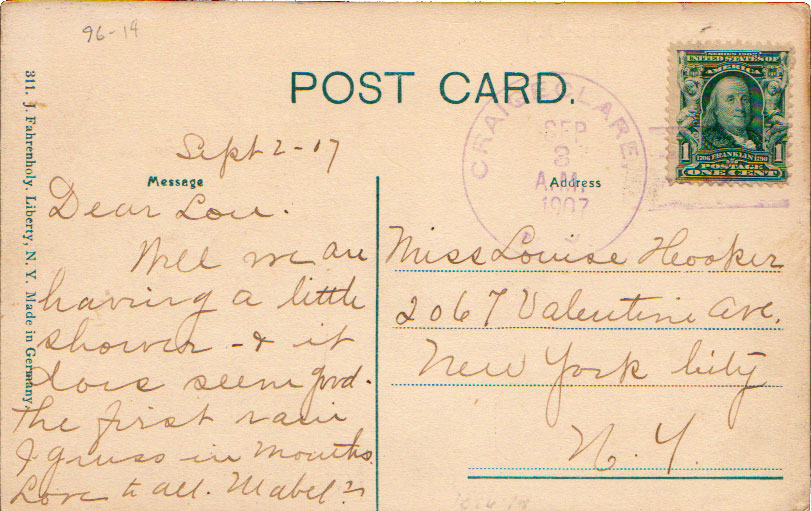 96-14
POST CARD.
CRAIGECLARE
SEP
3
A.M.
1907
SERIES 1902
UNITED STATES OF
AMERICA
1 1
1706 FRANKLIN 1790
POSTAGE
ONE CENT
311. J. Fahrenholy. Liberty, N. Y. Made in Germany.
Sept 2-07
Message
Address
Dear Lou.
Well we are
having a little
shower - & it
does seem good.
The first rain
I guess in months.
Love to all. Mabel
Miss Louise Hooker
2067 Valentine Ave.
New York City
N. Y.